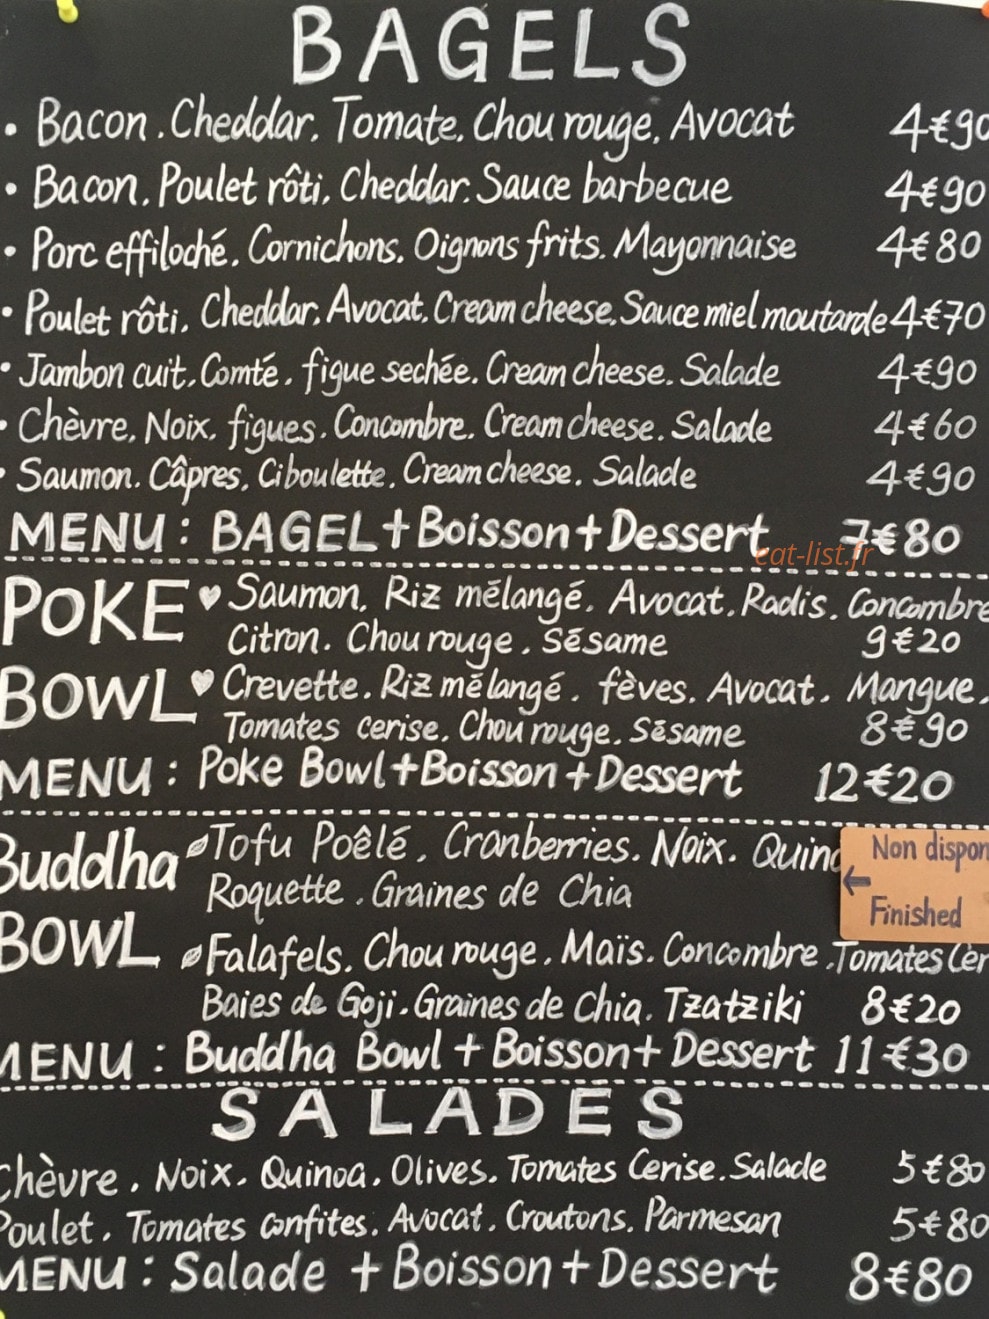 BAGELS
• Bacon. Cheddar. Tomate. Chou rouge. Avocat 4€90
• Bacon. Poulet rôti. Cheddar. Sauce barbecue 4€90
• Porc effiloché. Cornichons. Oignons frits. Mayonnaise 4€80
• Poulet rôti. Cheddar. Avocat. Cream cheese. Sauce miel moutarde 4€70
• Jambon cuit. Comté. figue sechée. Cream cheese. Salade 4€90
• Chèvre. Noix. figues. Concombre. Cream cheese. Salade 4€60
• Saumon. Câpres. Ciboulette. Cream cheese. Salade 4€90
MENU: BAGEL + Boisson + Dessert 7€80
eat-list.fr
POKE ♥ Saumon. Riz mélangé. Avocat. Radis. Concombre
Citron. Chou rouge. Sésame 9€20
BOWL ♥ Crevette. Riz mélangé. fèves. Avocat. Mangue.
Tomates cerise. Chou rouge. Sésame 8€90
MENU: Poke Bowl + Boisson + Dessert 12€20
Buddha Tofu Poêlé. Cranberries. Noix. Quino
Non dispon
Roquette. Graines de Chia
← Finished
BOWL Falafels. Chou rouge. Maïs. Concombre. Tomates Cer
Baies de Goji. Graines de Chia. Tzatziki 8€20
MENU: Buddha Bowl + Boisson + Dessert 11€30
SALADES
Chèvre. Noix. Quinoa. Olives. Tomates Cerise. Salade 5€80
Poulet. Tomates confites. Avocat. Croutons. Parmesan 5€80
MENU: Salade + Boisson + Dessert 8€80